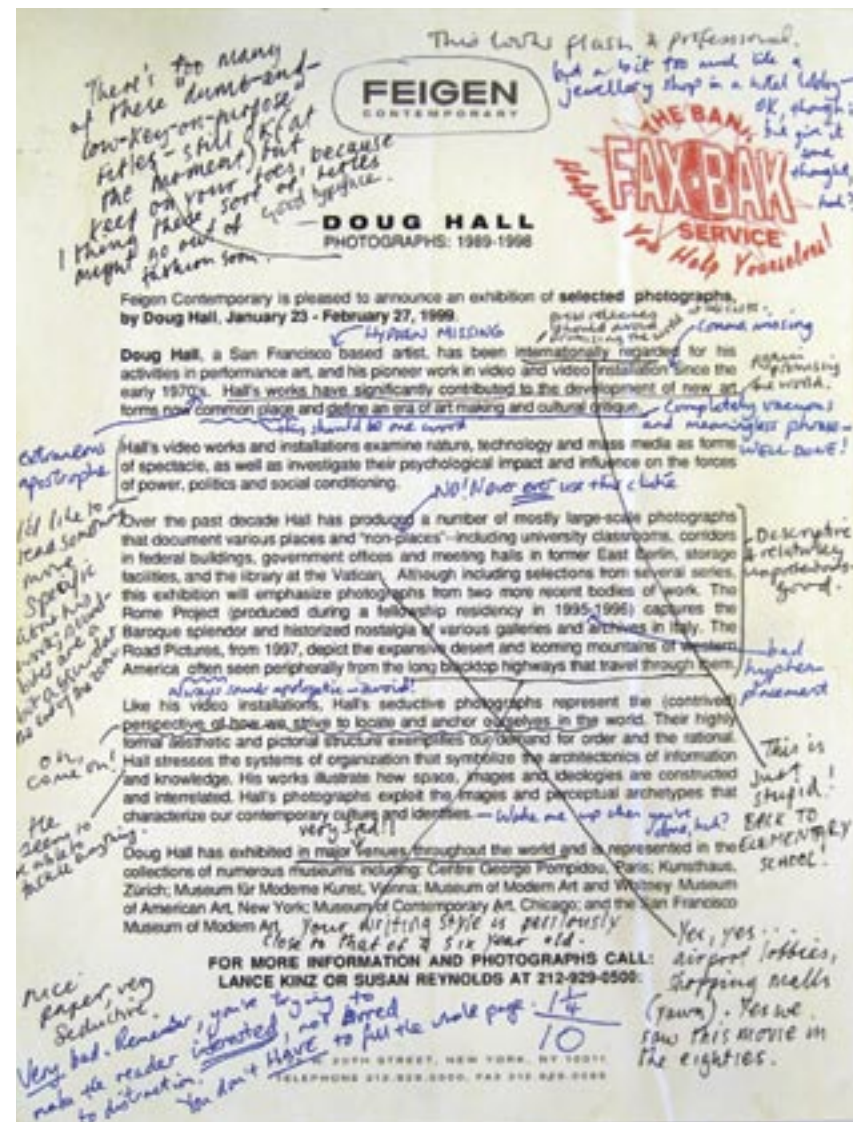 This looks flash & professional.
but a bit too much like a
jewellery shop in a hotel lobby—
OK, though
but give it
some
thought,
huh?
There's too many
of these "dumb-and-
low-key-on-purpose"
titles – still OK (at
the moment) but
keep on your toes, because
I think these sort of titles
might go out of
fashion soon.
good typeface.
FEIGEN
CONTEMPORARY
THE BANK
FAX-BAK
SERVICE
Helping You Help Yourselves!
DOUG HALL
PHOTOGRAPHS: 1989-1998
Feigen Contemporary is pleased to announce an exhibition of selected photographs,
by Doug Hall, January 23 - February 27, 1999.
HYPHEN MISSING
press releases
should avoid
promising the world
comma missing
Doug Hall, a San Francisco based artist, has been internationally regarded for his
activities in performance art, and his pioneer work in video and video installation since the
early 1970's. Hall's works have significantly contributed to the development of new art
forms now common place and define an era of art making and cultural critique.
Again
promising
the world.
this should be one word
Completely vacuous
and meaningless phrase—
WELL DONE!
extraneous
apostrophe
Hall's video works and installations examine nature, technology and mass media as forms
of spectacle, as well as investigate their psychological impact and influence on the forces
of power, politics and social conditioning.
NO! Never ever use this cliche
I'd like to
read something
more
specific
about his
works
bites are a
but
the end of the
Over the past decade Hall has produced a number of mostly large-scale photographs
that document various places and "non-places"--including university classrooms, corridors
in federal buildings, government offices and meeting halls in former East Berlin, storage
facilities, and the library at the Vatican. Although including selections from several series,
this exhibition will emphasize photographs from two more recent bodies of work. The
Rome Project (produced during a fellowship residency in 1995-1996) captures the
Baroque splendor and historized nostalgia of various galleries and archives in Italy. The
Road Pictures, from 1997, depict the expansive desert and looming mountains of western
America often seen peripherally from the long blacktop highways that travel through them.
Descriptive
& relatively
unpretentious—
good.
bad
hyphen
placement
Always sounds apologetic – avoid!
Like his video installations, Hall's seductive photographs represent the (contrived)
perspective of how we strive to locate and anchor ourselves in the world. Their highly
formal aesthetic and pictorial structure exemplifies our demand for order and the rational.
Hall stresses the systems of organization that symbolize the architectonics of information
and knowledge. His works illustrate how space, images and ideologies are constructed
and interrelated. Hall's photographs exploit the images and perceptual archetypes that
characterize our contemporary culture and identities.
— Wake me up when you've
done, huh?
oh,
come on!
He
seems to
be able to
tackle anything.
This is
just
stupid!
BACK TO
ELEMENTARY
SCHOOL!
very sad!!
Doug Hall has exhibited in major venues throughout the world and is represented in the
collections of numerous museums including: Centre George Pompidou, Paris; Kunsthaus,
Zürich; Museum für Moderne Kunst, Vienna: Museum of Modern Art and Whitney Museum
of American Art, New York; Museum of Contemporary Art, Chicago; and the San Francisco
Museum of Modern Art.
Your writing style is perilously
close to that of a six year old.
FOR MORE INFORMATION AND PHOTOGRAPHS CALL:
LANCE KINZ OR SUSAN REYNOLDS AT 212-929-0500.
Yes, yes...
airport lobbies,
shopping malls
(yawn). Yes we
saw this movie in
the eighties.
nice
paper, very
seductive.
Very bad. Remember, you're trying to
make the reader interested, not bored
to distraction.
You don't HAVE to fill the whole page.
1 1/4
10
20TH STREET, NEW YORK, NY 10011
TELEPHONE 212.929.0500, FAX 212.929.